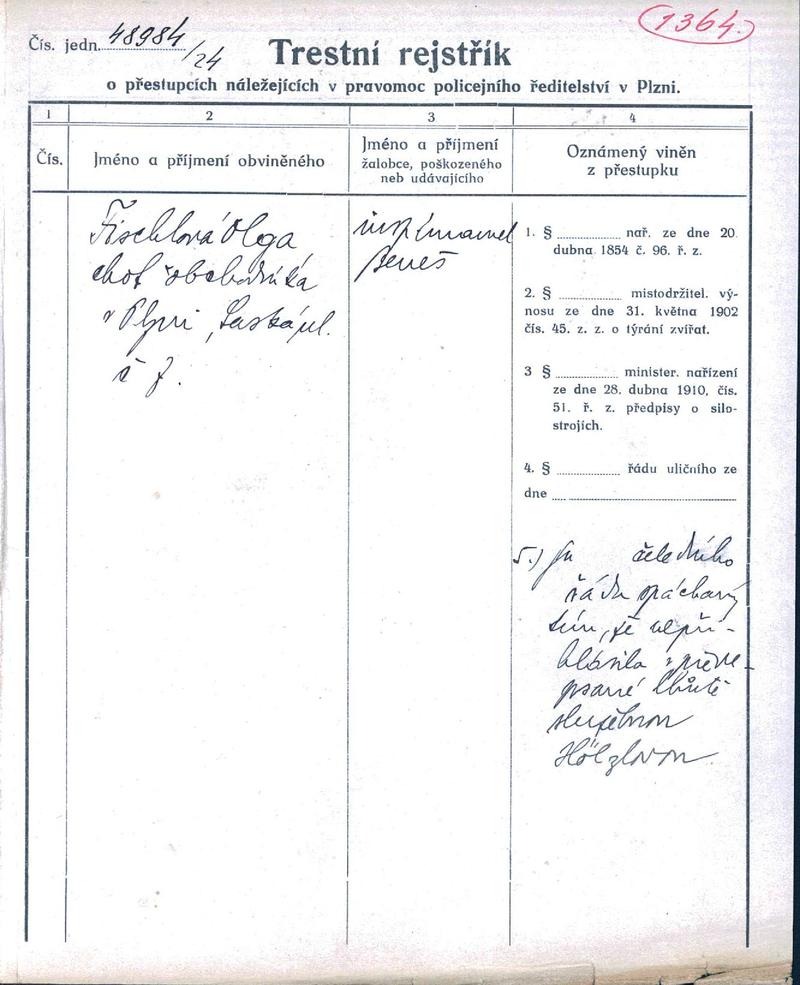 Čís. jedn. 48984/24
1364.
Trestní rejstřík
o přestupcích náležejících v pravomoc policejního ředitelství v Plzni.
1
2
3
4
Čís.
Jméno a příjmení obviněného
Jméno a příjmení
žalobce, poškozeného
neb udávajícího
Oznámený viněn
z přestupku
Fischlová Olga
choť obchodníka
v Plzni, Saská ul.
č 7.
insp Emanuel
Beneš
1. § nař. ze dne 20.
dubna 1854 č. 96. ř. z.
2. § mistodržitel. vý-
nosu ze dne 31. května 1902
čís. 45. z. z. o týrání zvířat.
3 § minister. nařízení
ze dne 28. dubna 1910, čís.
51. ř. z. předpisy o silo-
strojích.
4. § řádu uličního ze
dne
5.) čeledního
řádu spáchaný
tím, že nepři-
hlásila v přede-
psané lhůtě
služebnou
Hölzlovou